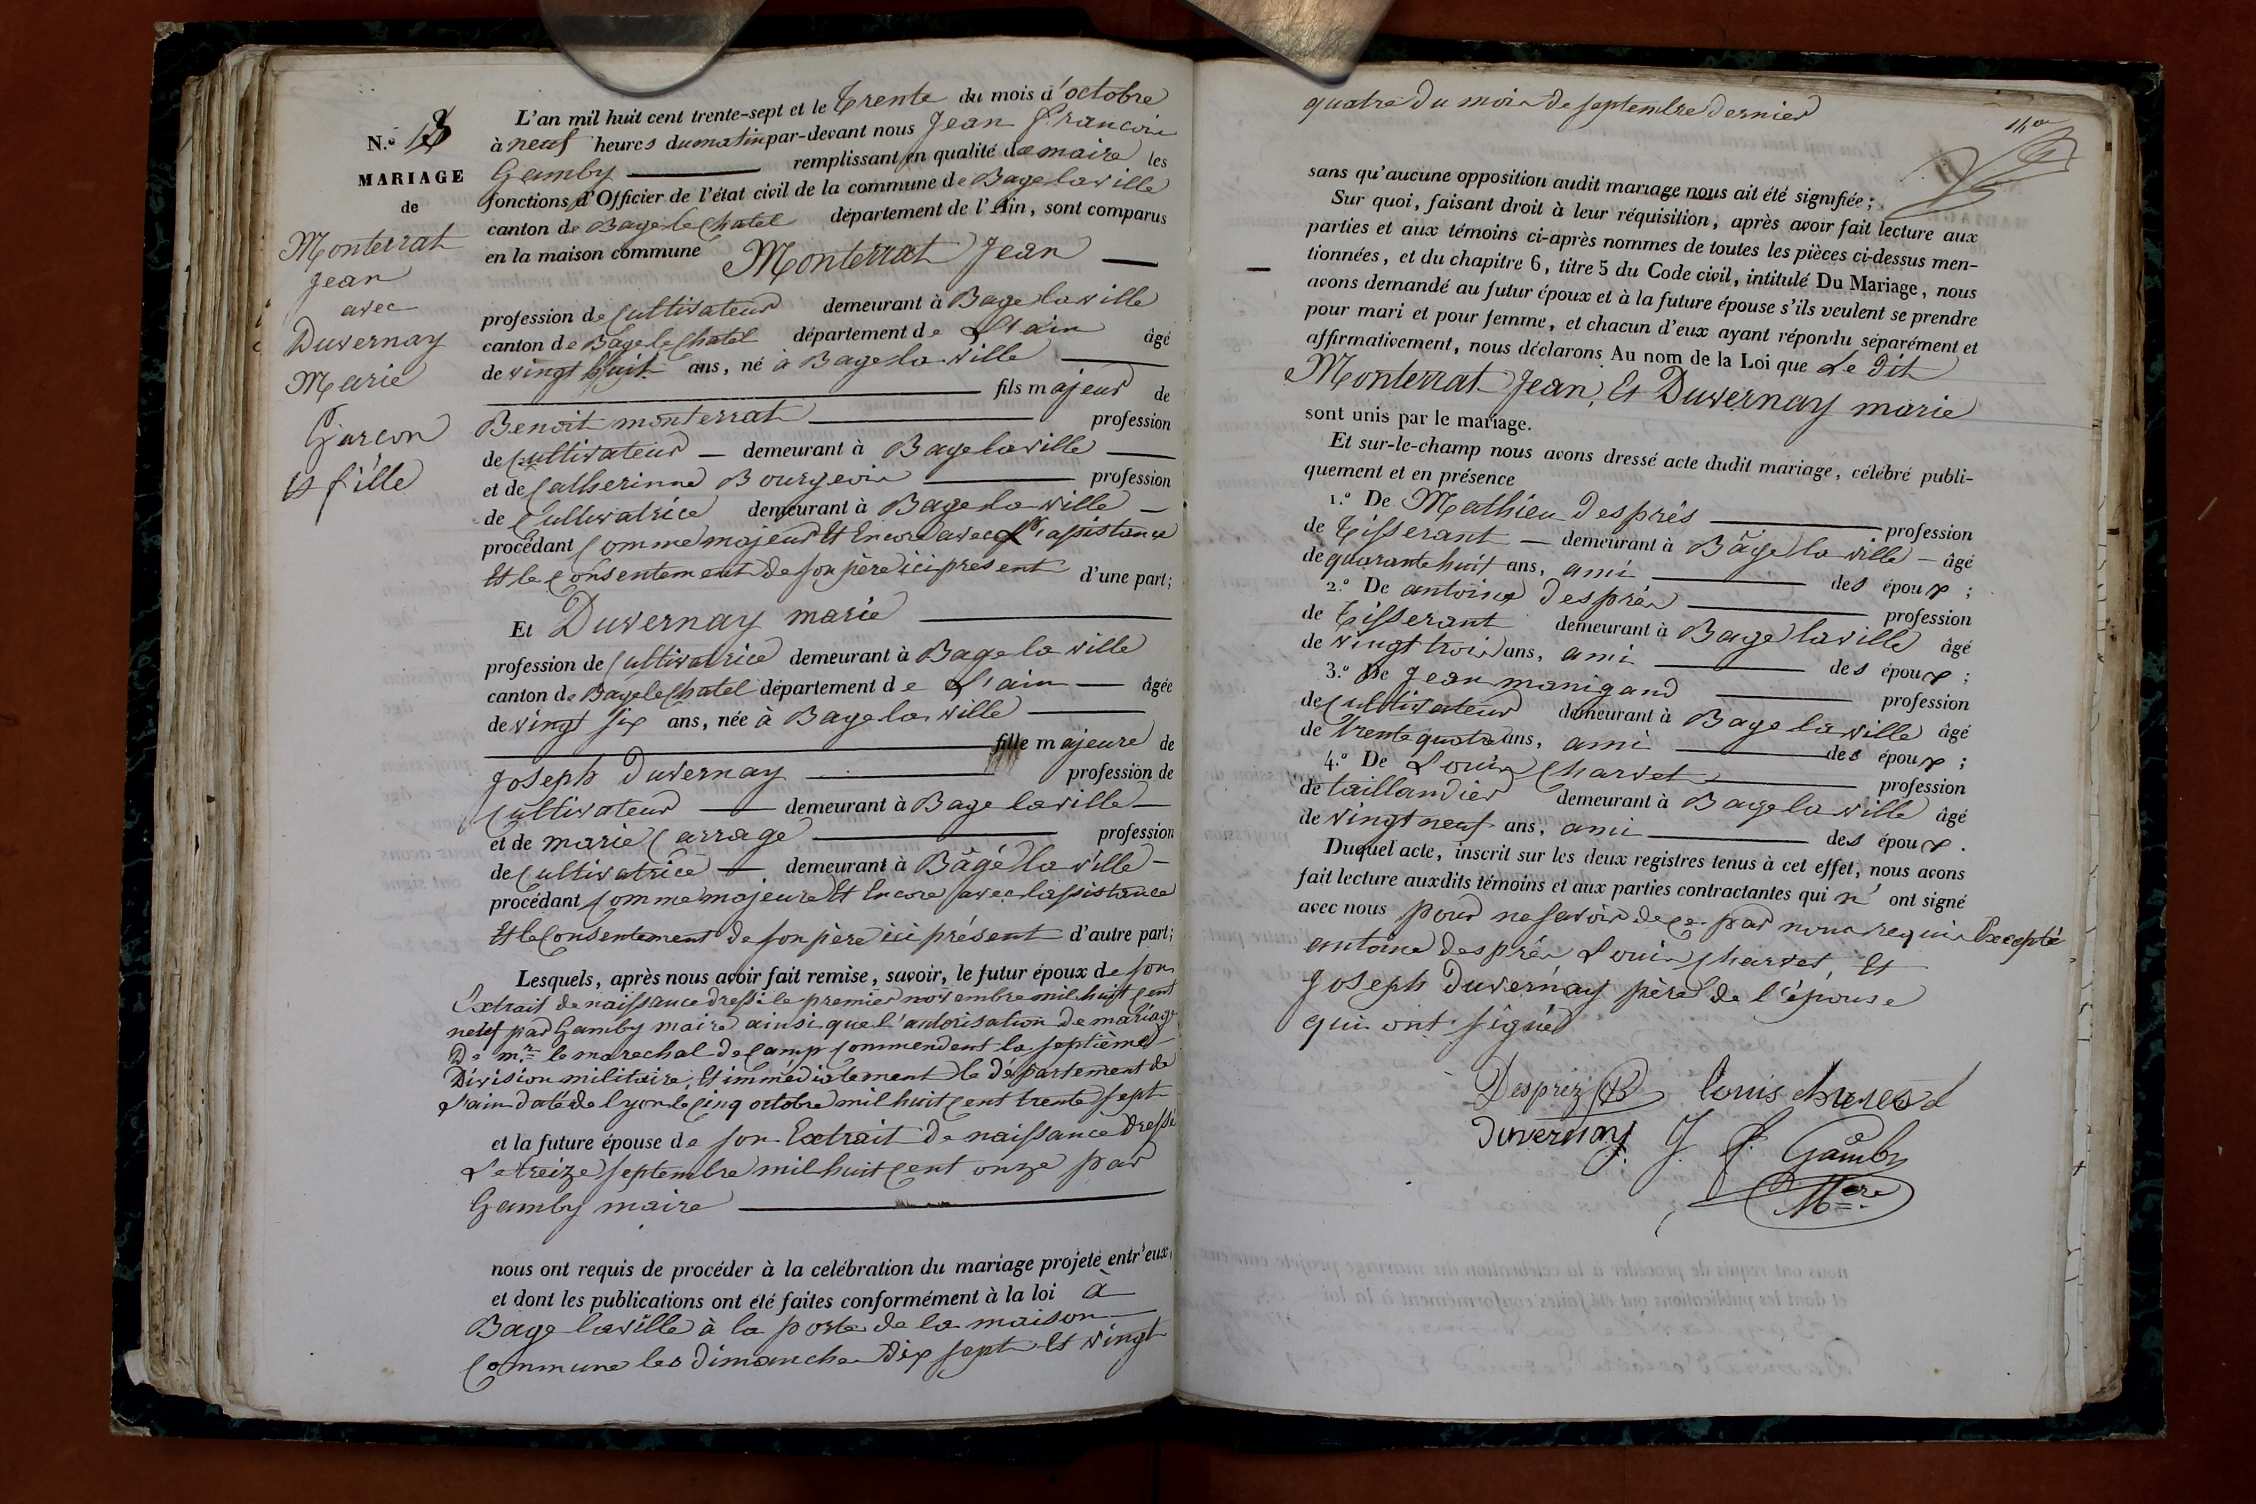 N.o 18
MARIAGE
de
Monterrat
Jean
avec
Duvernay
Marie
Garcon
et fille
L'an mil huit cent trente-sept et le trente du mois d'octobre
à neuf heures du matin par-devant nous Jean Francois
Gamby remplissant en qualité de maire les
fonctions d'Officier de l'état civil de la commune de Bage la ville
canton de Bage le Chatel département de l'Ain, sont comparus
en la maison commune Monterrat Jean
profession de Cultivateur demeurant à Bage la ville
canton de Bage le Chatel département de L'ain âgé
de vingt huit ans, né à Bage la ville
fils majeur de
Benoit monterrat profession
de Cultivateur demeurant à Bage la ville
et de Catherinne Bourgeois profession
de Cultivatrice demeurant à Bage la ville
procédant Comme majeur Et Encore avec l'assistance
Et le Consentement de son père ici présent d'une part;
Et Duvernay marie
profession de Cultivatrice demeurant à Bage la ville
canton de Bage le Chatel département de L'ain âgée
de vingt six ans, née à Bage la ville
fille majeure de
Joseph Duvernay profession de
Cultivateur demeurant à Bage la ville
et de marie Carrage profession
de Cultivatrice demeurant à Bâgé la ville
procédant Comme majeure Et Encore avec lassistance
Et le Consentement de son père ici présent d'autre part;
Lesquels, après nous avoir fait remise, savoir, le futur époux de son
Extrait de naissance dressé le premier novembre mil huit cent
neuf par Gamby maire ainsi que l'autorisation de mariage
De mr le marechal de Camp Commendent la septième
Division militaire, Et immédiatement le département de
l'ain datée de lyon le Cinq octobre mil huit cent trente sept
et la future épouse de son Extrait de naissance dressé
Le treize septembre mil huit cent onze par
Gamby maire
nous ont requis de procéder à la celébration du mariage projeté entr'eux,
et dont les publications ont été faites conformément à la loi à
Bage la ville à la porte de la maison
Commune les dimanches Dix sept Et vingt
quatre du mois de septembre dernier
sans qu'aucune opposition audit mariage nous ait été signifiée;
Sur quoi, faisant droit à leur réquisition, après avoir fait lecture aux
parties et aux témoins ci-après nommes de toutes les pièces ci-dessus men-
tionnées, et du chapitre 6, titre 5 du Code civil, intitulé Du Mariage, nous
avons demandé au futur époux et à la future épouse s'ils veulent se prendre
pour mari et pour femme, et chacun d'eux ayant répondu séparément et
affirmativement, nous déclarons Au nom de la Loi que Le dit
Monterrat Jean, Et Duvernay marie
sont unis par le mariage.
Et sur-le-champ nous avons dressé acte dudit mariage, célébré publi-
quement et en présence
1.o De Mathieu Després profession
de Tisserant demeurant à Bâgé la ville âgé
de quarante huit ans, ami des époux;
2.o De antoine Després profession
de Tisserant demeurant à Bage la ville âgé
de vingt trois ans, ami des époux;
3.o De Jean manigand profession
de Cultivateur demeurant à Bage la ville âgé
de trente quatre ans, ami des époux;
4.o De Louis Charvet profession
de taillandier demeurant à Bage la ville âgé
de vingt neuf ans, ami des époux.
Duquel acte, inscrit sur les deux registres tenus à cet effet, nous avons
fait lecture auxdits témoins et aux parties contractantes qui n'ont signé
avec nous pour ne savoir de ce par nous requis Excepté
antoine després Louis Charvet, Et
Joseph Duvernay père de l'épouse
qui ont signé
Desprèz louis charvet
Duvernay J. F. Gamby
Mere